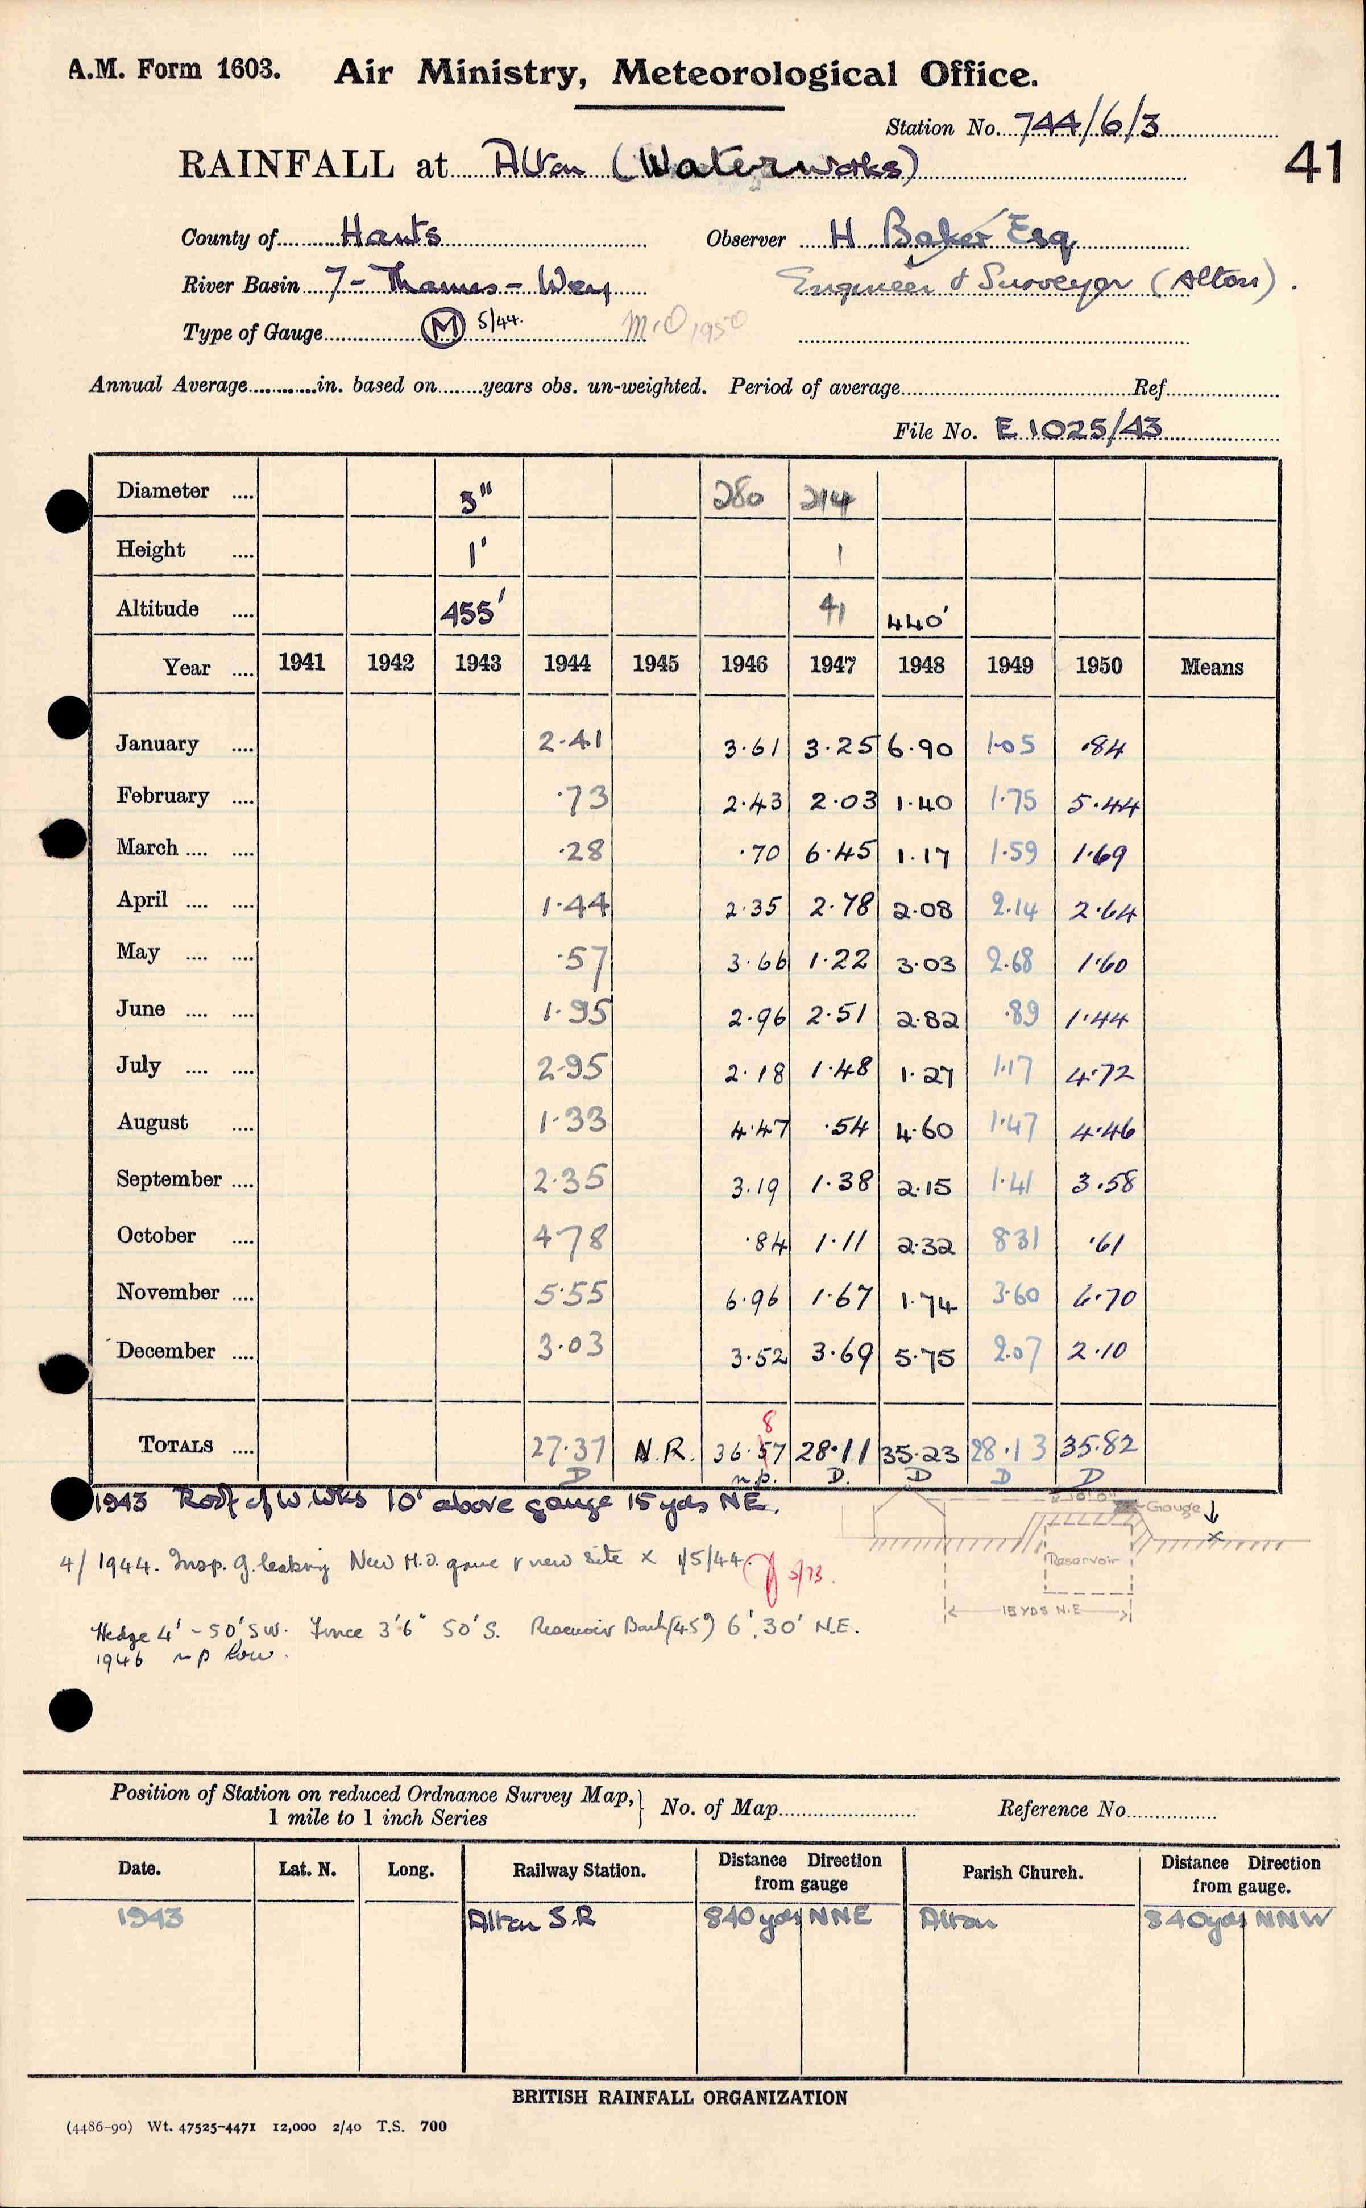 A.M. Form 1603. Air Ministry, Meteorological Office.
Station No. 744/6/3
41
RAINFALL at Alton (Waterworks)
County of Hants Observer H Baker Esq
River Basin 7 - Thames - Wey Engineer & Surveyor (Alton).
Type of Gauge (M) 5/44. M.O 1950
Annual Average............in. based on.......years obs. un-weighted. Period of average.......... Ref..........
File No. E 1025/43
Diameter .... 5" 280 214
Height .... 1' 1
Altitude .... 455' 41 440'
Year .... 1941 1942 1943 1944 1945 1946 1947 1948 1949 1950 Means
January .... 2.41 3.61 3.25 6.90 1.05 .84
February .... .73 2.43 2.03 1.40 1.75 5.44
March .... .... .28 .70 6.45 1.17 1.59 1.69
April .... .... 1.44 2.35 2.78 2.08 2.14 2.64
May .... .... .57 3.66 1.22 3.03 2.68 1.60
June .... .... 1.95 2.96 2.51 2.82 .89 1.44
July .... .... 2.95 2.18 1.48 1.27 1.17 4.72
August .... 1.33 4.47 .54 4.60 1.47 4.46
September .... 2.35 3.19 1.38 2.15 1.41 3.58
October .... 4.78 .84 1.11 2.32 8.31 .61
November .... 5.55 6.96 1.67 1.74 3.60 6.70
December .... 3.03 3.52 3.69 5.75 2.07 2.10
8
TOTALS .... 27.37 N.R. 36.57 28.11 35.23 28.13 35.82
D n.p. D. D D D
1943 Roof of W. Wks 10' above gauge 15 yds NE.
10'0" Gauge
x
Reservoir
15 YDS N.E
4/1944. Insp. G. leaking New M.O. gauge & new site x 1/5/44. 5/73.
Hedge 4' - 50' SW. Fence 3'6" 50' S. Reservoir Bank (45°) 6', 30' N.E.
1946 n p low.
Position of Station on reduced Ordnance Survey Map,} No. of Map.......... Reference No..........
1 mile to 1 inch Series
Date. Lat. N. Long. Railway Station. Distance Direction from gauge Parish Church. Distance Direction from gauge.
1943 Alton S.R 840 yds NNE Alton 840 yds NNW
BRITISH RAINFALL ORGANIZATION
(4486-90) Wt. 47525-4471 12,000 2/40 T.S. 700